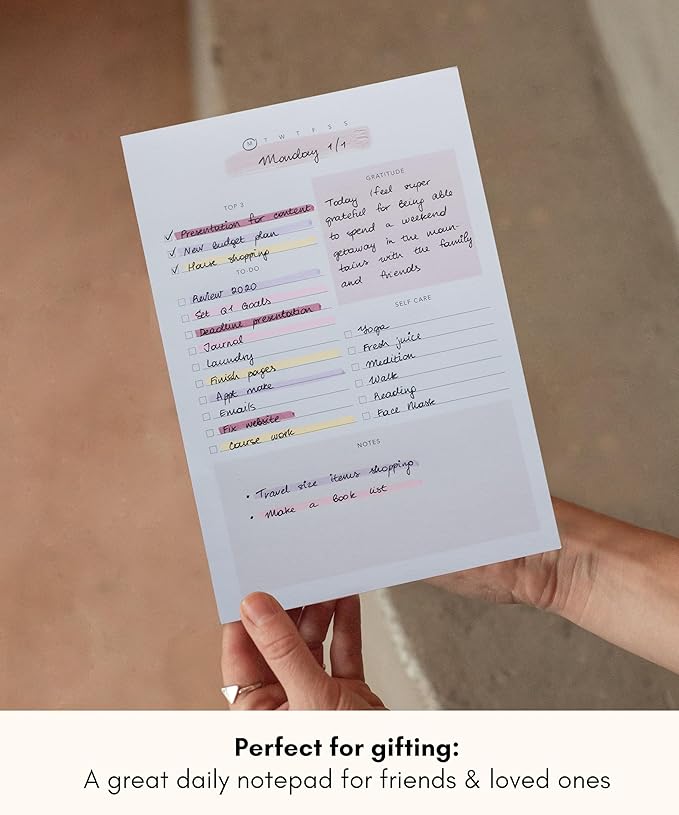 M T W T F S S
Monday 1/1
TOP 3
Presentation for content
New Budget plan
House shopping
GRATITUDE
Today I feel super
grateful for being able
to spend a weekend
getaway in the moun-
tains with the family
and friends
TO-DO
Review 2020
Set Q1 Goals
Deadline presentation
Journal
Laundry
Finish pages
Appt make
Emails
Fix website
Course work
SELF CARE
Yoga
Fresh juice
Medition
Walk
Reading
Face Mask
NOTES
• Travel size items shopping
• Make a Book list
Perfect for gifting:
A great daily notepad for friends & loved ones